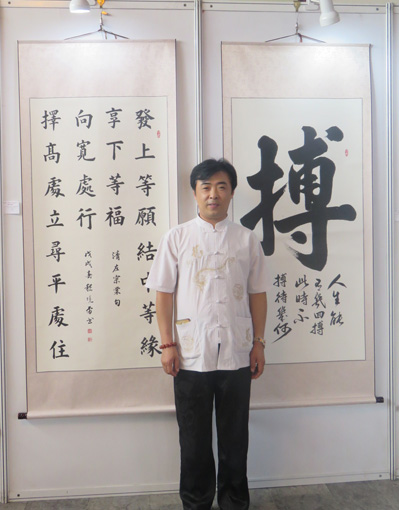 發上等願結中等緣
享下等福
清左宗棠句
擇高處立尋平處住
向寬處行
戊戌
搏
人生能
有幾回搏
此時不
搏待幾何